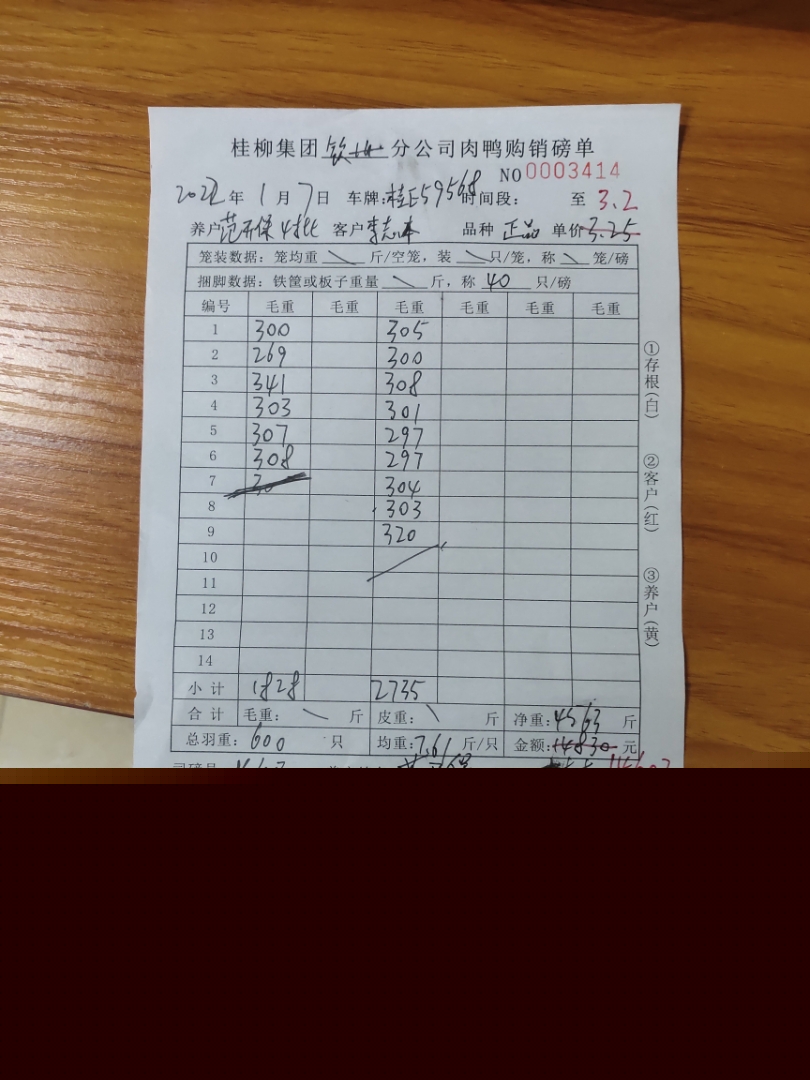 桂柳集团钦州分公司肉鸭购销磅单
NO 0003414
2022年1月7日 车牌:桂E59568 时间段: 至 3.2
养户 客户 李志 品种 正品 单价 3.25
笼装数据: 笼均重 \ 斤/空笼, 装 \ 只/笼, 称 \ 笼/磅
捆脚数据: 铁筐或板子重量 \ 斤, 称 40 只/磅
编号 毛重 毛重 毛重 毛重 毛重 毛重
1 300 305
2 269 300
3 341 308
4 303 301
5 307 297
6 308 297
7 30 304
8 303
9 320
10
11
12
13
14
小计 1828 2735
合计 毛重: \ 斤 皮重: \ 斤 净重: 4563 斤
总羽重: 600 只 均重: 7.61 斤/只 金额: 14830 元
①存根(白)
②客户(红)
③养户(黄)